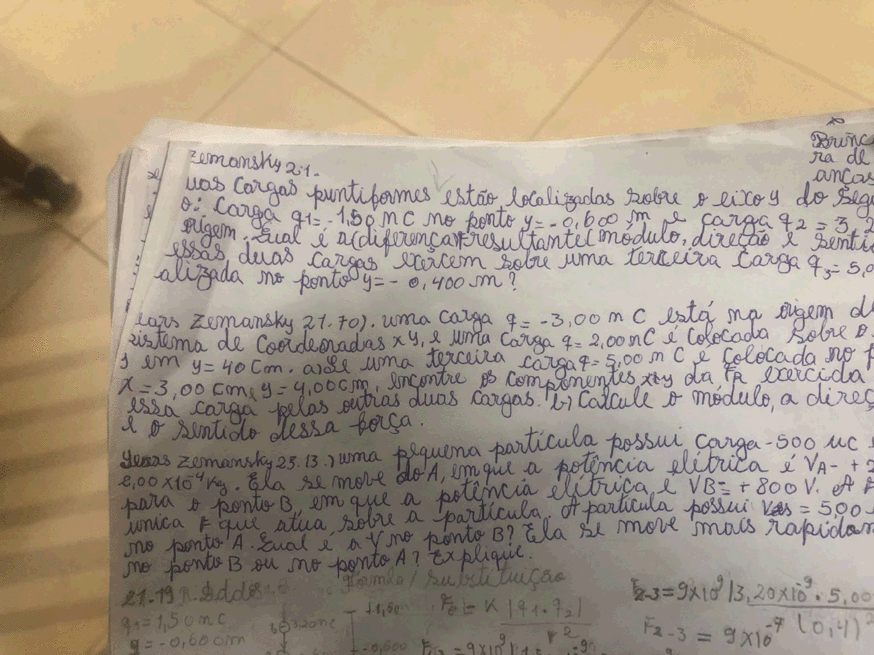 Zemansky 21.
uas cargas puntiformes estão localizadas sobre o eixo y do segu
o: Carga q1=-1,50 nC no ponto y=-0,600 m e carga q2 = 3,2
origem. Qual é a (diferença) F resultante (módulo, direção e senti
essas duas cargas exercem sobre uma terceira carga q3=5,0
alizada no ponto y=-0,400 m?
Brinca
ra de
ancas
ears Zemansky 21.70). uma carga q = -3,00 nC está na origem d
sistema de coordeonadas xy, e uma carga q = 2,00 nC é colocada sobre o
y em y=40 cm. a) Se uma terceira carga q=5,00 nC é colocada no p
x=3,00 cm e y=4,00 cm, encontre os componentes x e y da FR exercida
essa carga pelas outras duas cargas. b) Calcule o módulo, a direç
e o sentido dessa força.
Years Zemansky 23.13.) uma pequena partícula possui carga -500 uc e
2,00x10⁻⁴ Kg. Ela se move do A, em que a potência elétrica é VA= +2
para o ponto B, em que a potência elétrica é VB= +800 V. A F
unica F que atua, sobre a partícula. A partícula possui = 5,00
no ponto A. Qual é a V no ponto B? Ela se move mais rapidam
no ponto B ou no ponto A? Explique.
21-19 Fórmula/Substituição
q1=1,50 nC Fe = K |q1.q2| / r²
q=-0,600m
F2-3=9x10⁹|3,20x10⁻⁹.5,00
(0,4)²
F2-3 = 9x10⁻⁷